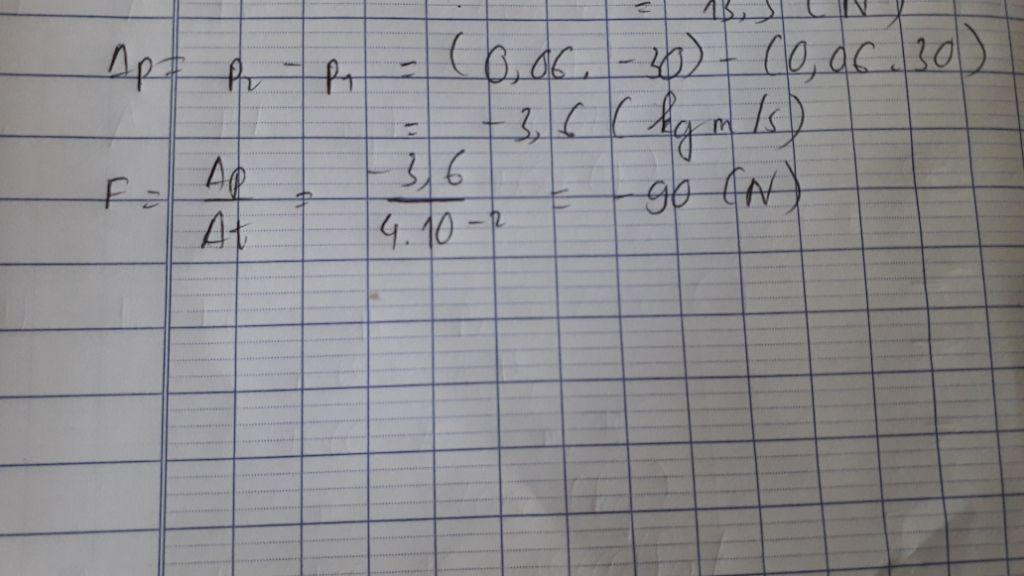 = 13,5 (N)
Δp = p₂ - p₁ = (0,06. -30) - (0,06.30)
= -3,6 (kgm/s)
F = Δp/Δt = -3,6/4.10⁻² = -90 (N)